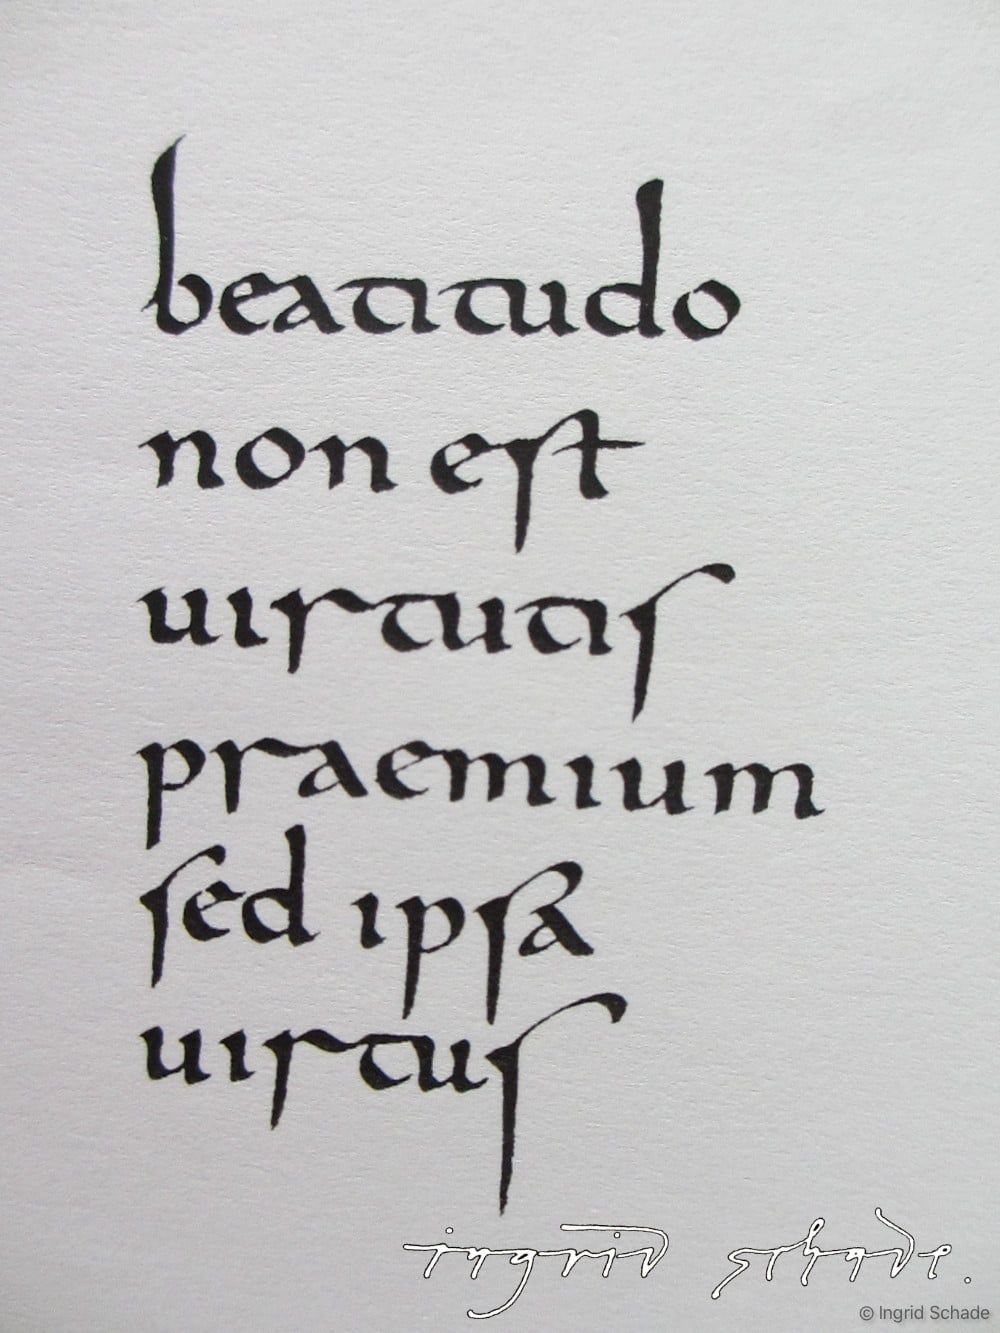 beatitudo
non est
uirtutis
praemium
sed ipsa
uirtus
ingrid schade.
© Ingrid Schade